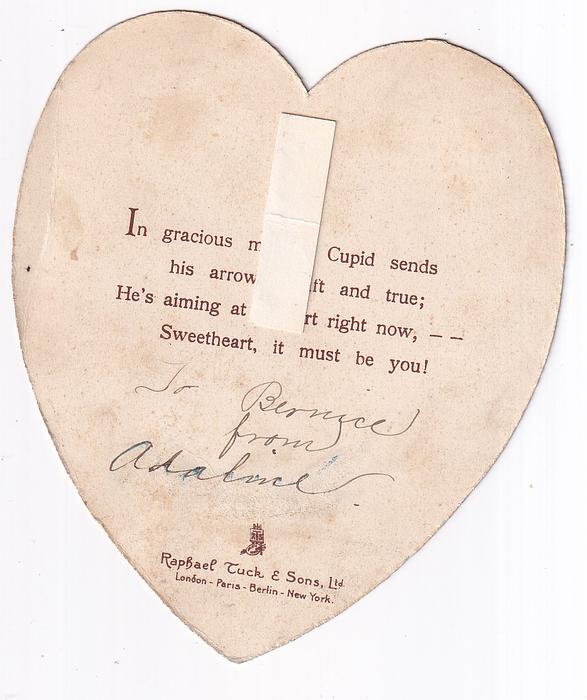 In gracious m Cupid sends
his arrow ft and true;
He's aiming at rt right now, — —
Sweetheart, it must be you!
To Bernice
from
Adaline.
Raphael Tuck & Sons, Ltd.
London - Paris - Berlin - New York.